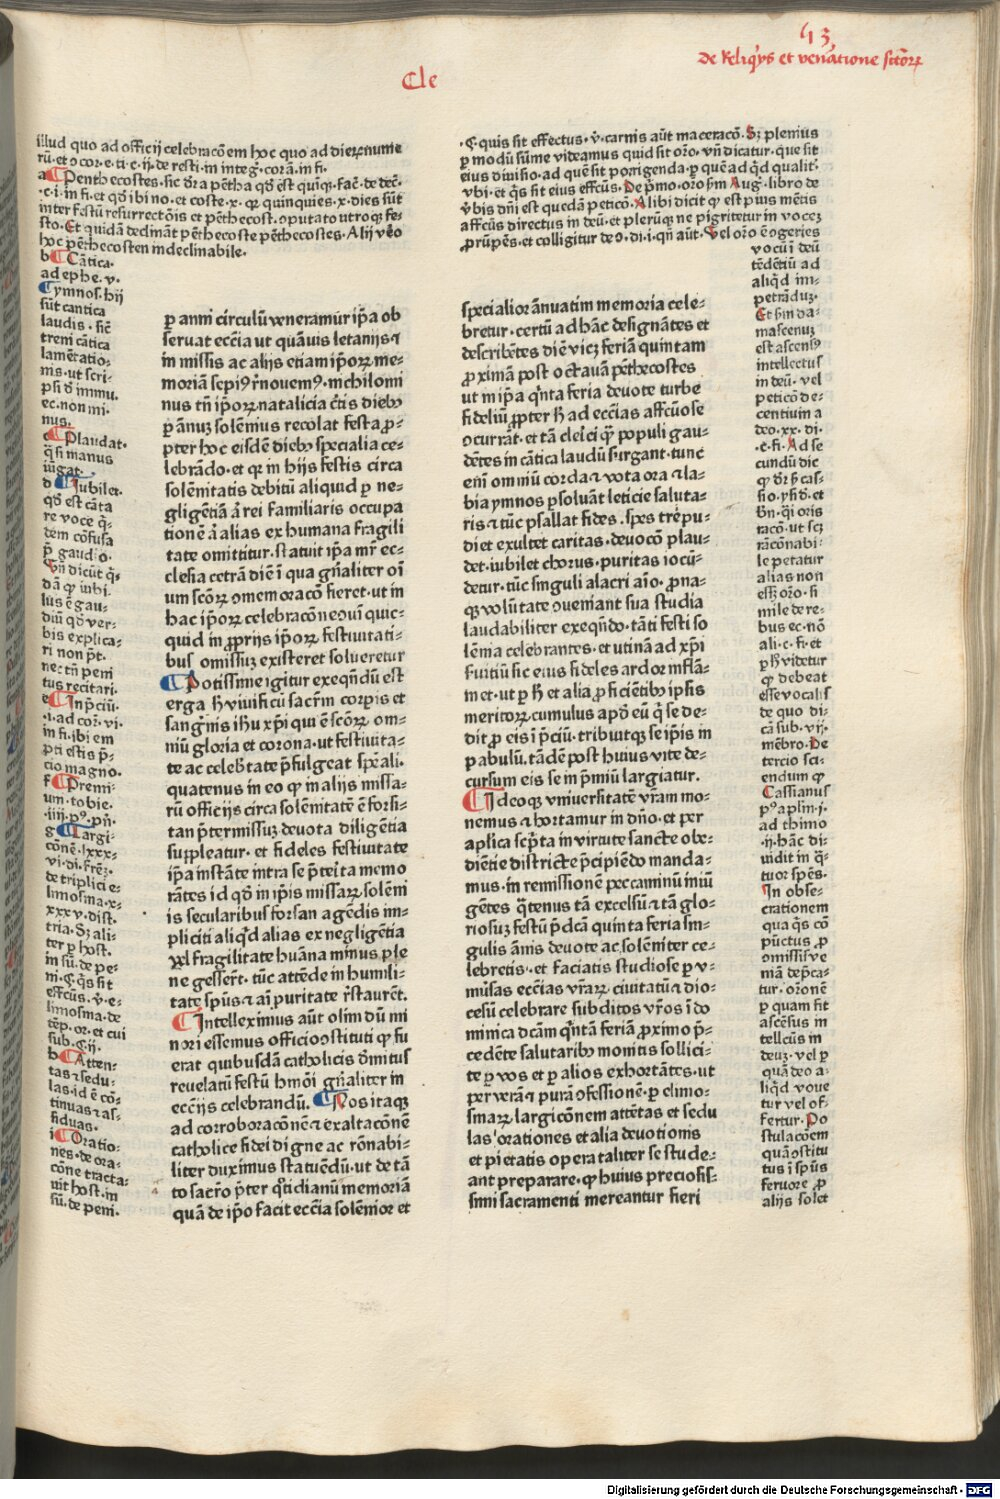 43
de reliq's et ven'atione sctõꝝ
Cle
illud quo ad officij celebracõem hoc quo ad dierẽ nume
rũ·et ocor·e·ti·c·ij·de resti·in integ̃·corã·in fi·
a Penthecostes·sic dr̃a pẽtha qd̃ est quiq̨·fac̃·de dec̃·
·c·i·in fi·et qd̃ ibi no·et coste·x·qꝛ quinquies·x·dies sũt
inter festũ resurrectõis et pẽthecost·oputato utroq̨ fe-
sto·Et quidã declinãt pẽthecoste pẽthecostes·Alij v̾o
hoc pẽthecosten indeclinabile·
b Cãtica·
ad ephe·v·
Cymnos·hij
sũt cantica
laudis·sic̃
treni cãtica
lamẽtatio-
nis·ut scri-
psi ð immu·
ec·non mi-
nus·
c Plaudat·
q̃si manus
iũgat·
d Jubilet·
qd̃ est cãta
re voce q̃-
dem cõfusa
p̃ gaudio·
Vñ dicũt q̃-
dã ꝙ iubi-
lus ẽ gau-
diũ qd̃ ver-
bis explica-
ri non pt̃·
nec tñ peni
tus recitari·
e In p̃ciũ·
·i·ad cor̃·vi·
in fi·ibi em
p̃ti estis p̃-
cio magno·
f Premi-
um·tobie·
·iiij·pꝰ·pñ·
g Largi-
cõne·lxxx-
vi·di·frẽꝫ·
de triplici e-
limosina·x-
xxxv·dist·
tria·Sꝫ ali-
ter p host·
in sũ·de pe-
ni·C·q̃s sit
effcũs·v̾·e-
limosina·de
tẽp·or·et cui
sub·c·ij·
h Atten-
tas ⁊ sedu-
las·id ẽ cõ-
tinuas ⁊ as-
siduas·
i Oratio-
nes·de ora-
cõne tracta-
uit host·in
sũ·de peni·
p anni circulũ veneramur ip̃a ob
seruat eccĩa ut quãuis letanijs ⁊
in missis ac alijs etiam ip̃oꝝ me-
moriam sepiꝰ r̃nouemꝰ·nichilomi
nus tñ ip̃oꝝ natalicia c̃tis dieb̾
p ãnuꝫ solẽnius recolat festa p̱-
pter hoc eisdẽ dieb̾ specialia ce-
lebrãdo·et qꝛ in hijs festis circa
solẽnitatis debitũ aliquid p ne-
gligẽtiã ãt rei familiaris occupa
tionẽ ãt alias ex humana fragili
tate omittitur·statuit ip̃a mr̃ ec-
clesia cetrã diẽ ĩ qua gñaliter oĩ
um scõꝝ omemoracõ fieret·ut in
hac ip̃oꝝ celebracõne oui quic-
quid in ꝓprijs ip̃oꝝ festiuitati-
bus omissuꝫ existeret solueretur
Potissime igitur exequẽdũ est
erga h̾ viuificũ sacr̃m corpis et
sanguinis ihũ xp̃i qui ẽ scõꝝ om-
niũ gloria et corona·ut festiuita-
te ac celeb̾tate p̃fulgeat sp̃ali·
quatenus in eo ꝙ in alijs missa-
rũ officijs circa solẽnitatẽ ẽ forsi-
tan p̃termissuꝫ deuota diligẽtia
suppleatur·et fideles festiuitate
ip̃a instãte intra se p̃terita memo
rãtes id qd̃ in ip̃is missaꝝ solẽni
is secularibus forsan agẽdis im-
pliciti aliq̃d alias ex negligẽtia
vel fragilitate huãna minus ple
ne gesser̃t·tũc attẽde in humili-
tate sp̃us ⁊ aĩ puritate r̃staurẽt·
Intelleximus aũt olim dũ mi
nori essemus officio ostituti ꝙ fu
erat quibusdã catholicis ð̃initus
reuelatũ festũ hmõi gñaliter in
ecc̃ijs celebrandũ· Nos itaqꝫ
ad corroboracõnẽ ⁊ exaltacõnẽ
catholice fidei digne ac rõnabi-
liter duximus statuẽdũ·ut de tã
to sacr̃o p̃ter q̾tidianũ memoriã
quã de ip̃o facit eccĩa solẽnior et
·C·quis sit effectus·v̾·carnis aũt maceracõ·Sꝫ plenius
p modũ sũme videamus quid sit or̃o·vñ dicatur·que sit
eius diuisio·ad quẽ sit porrigenda·p quẽ ad q̃d qualit̾·
vbi·et q̃s sit eius effcũs·De p̃mo·or̃o s̾m Aug̾·libro de
v̾bis dñi est quedã peticõ·Alibi dicit ꝙ est pius mẽtis
affcũs directus in deũ·et plerũqꝫ ne pigritetur in vocez
ꝓrũpẽs·et colligitur de 9·di·i·qñ aũt·Vel or̃o ẽ ogeries
vocũ ĩ deũ
tẽdẽtiũ ad
aliq̃d im-
petrãduꝫ·
Et s̾m da-
mascenuꝫ
est ascensꝰ
intellectus
in deũ·vel
peticõ de-
centium a
deo·xx·di·
·c·fi·Ad se
cundũ dic
ꝙ dr̃ h̾ cas-
sio·ysid̾·et
bñ·qi oris
racõ·ut scꝫ
rãcõnabi-
le petatur
alias non
esꝫ or̃o·si
mile de re-
bus ec·nõ
ali·c·fi·et
p h̾ videtur
ꝙ debeat
esse vocalis
de quo di-
cã sub·vij·
mẽbro·De
tercio sci-
endum ꝙ
Cassianus
pꝰ aplm·j·
ad thimo
·ij·hãc di-
uidit in q̃-
tuor spẽs·
In obse-
crationem
qua q̃s cõ
pũctus ꝓ
omissis ve
niã dep̃ca-
tur·oronẽ
p quam fit
ascẽsus in
tellcũs in
deuꝫ·vel p
quã deo a-
liq̃d voue
tur vel of-
fertur·Po
stulacõem
quã ostitu
tus ĩ sp̃us
feruore ꝓ
alijs solet
specialior ãnuatim memoria cele-
bretur·certũ ad hãc designãtes et
describẽtes diẽ vicꝫ feriã quintam
ꝓximã post octauã pẽthecostes
ut in ip̃a q̃nta feria deuote turbe
fideliũ ꝓpter h̾ ad ecc̃ias affcũose
ocurrãt·et tã cleĩci qꝫ populi gau-
dẽtes in cãtica laudũ surgant·tunc
em̃ omniũ corda ⁊ vota ora ⁊ la-
bia ymnos psoluãt leticie saluta-
ris ⁊ tũc psallat fides·spes tre̾pu-
diet exultet caritas·deuocõ plau-
det·iubilet chorus·puritas iocũ-
detur·tũc singuli alacri aĩo·ꝓna-
qꝫ volũtate oueniant sua studia
laudabiliter exeqñdo·tãti festi so
lẽnia celebrantes·et utinã ad xp̃i
s̃uitiũ sic eius fideles ardor inflã-
m et·ut p h̾ et alia ꝓficiẽtib̾ ipsis
meritoꝝ cumulus apd̾ eũ q̃ se de-
dit ꝓ eis ĩ p̃ciũ·tribuitqꝫ se ip̃is in
pabulũ·tãdẽ post huius vite de-
cursum eis se in p̃miũ largiatur·
Ideoqꝫ vniuersitatẽ vr̃am mo-
nemus ⁊ hortamur in dño·et per
aplica sc̾pta in virtute sancte obe-
diẽtie districte p̃cipiẽdo manda-
mus·in remissionẽ peccaminũ iniũ
gẽtes q̃tenus tã excelsũ ⁊ tã glo-
riosuꝫ festũ p̃dcã quinta feria sin-
gulis ãnis deuote ac solẽniter ce-
lebretis·et faciatis studiose p v-
niũsas ecc̃ias vr̃aꝝ ciuitatũ ⁊ dio-
cesũ celebrare subditos vr̃os ĩ do
minica dcam q̃ntã feriã ꝓximo p̃-
cedẽte salutarib̾ monitis sollici-
te p vos et p alios exhortãtes·ut
per verã ⁊ purã ofessionẽ·p elimo-
sinaꝝ largicõnem attẽtas et sedu
las orationes et alia deuotionis
et pietatis opera taliter se stude-
ant preparare·ꝙ huius preciosis-
simi sacramenti mereantur fieri
Digitalisierung gefördert durch die Deutsche Forschungsgemeinschaft · DFG